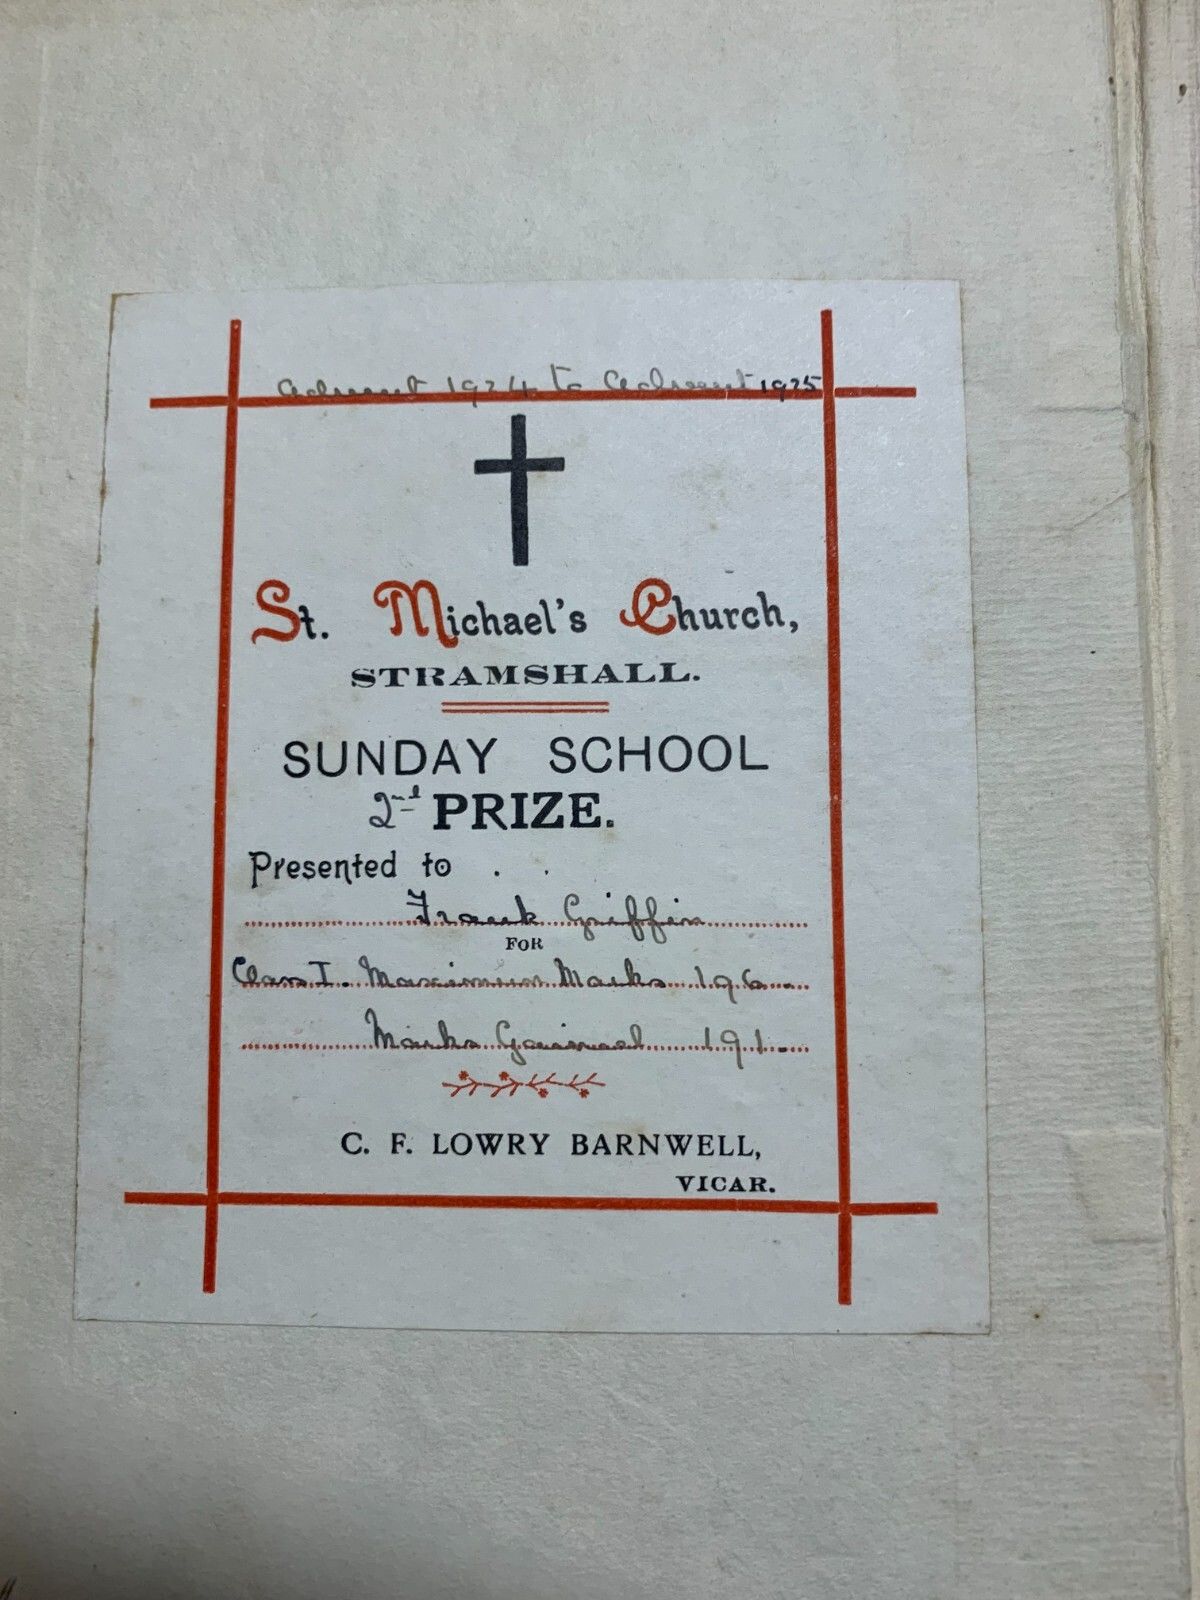 Advent 1924 to Advent 1925
St. Michael's Church,
STRAMSHALL.
SUNDAY SCHOOL
2nd PRIZE.
Presented to . .
Frank Griffin
FOR
Class I. Maximum Marks 196.
Marks Gained 191.
C. F. LOWRY BARNWELL,
VICAR.